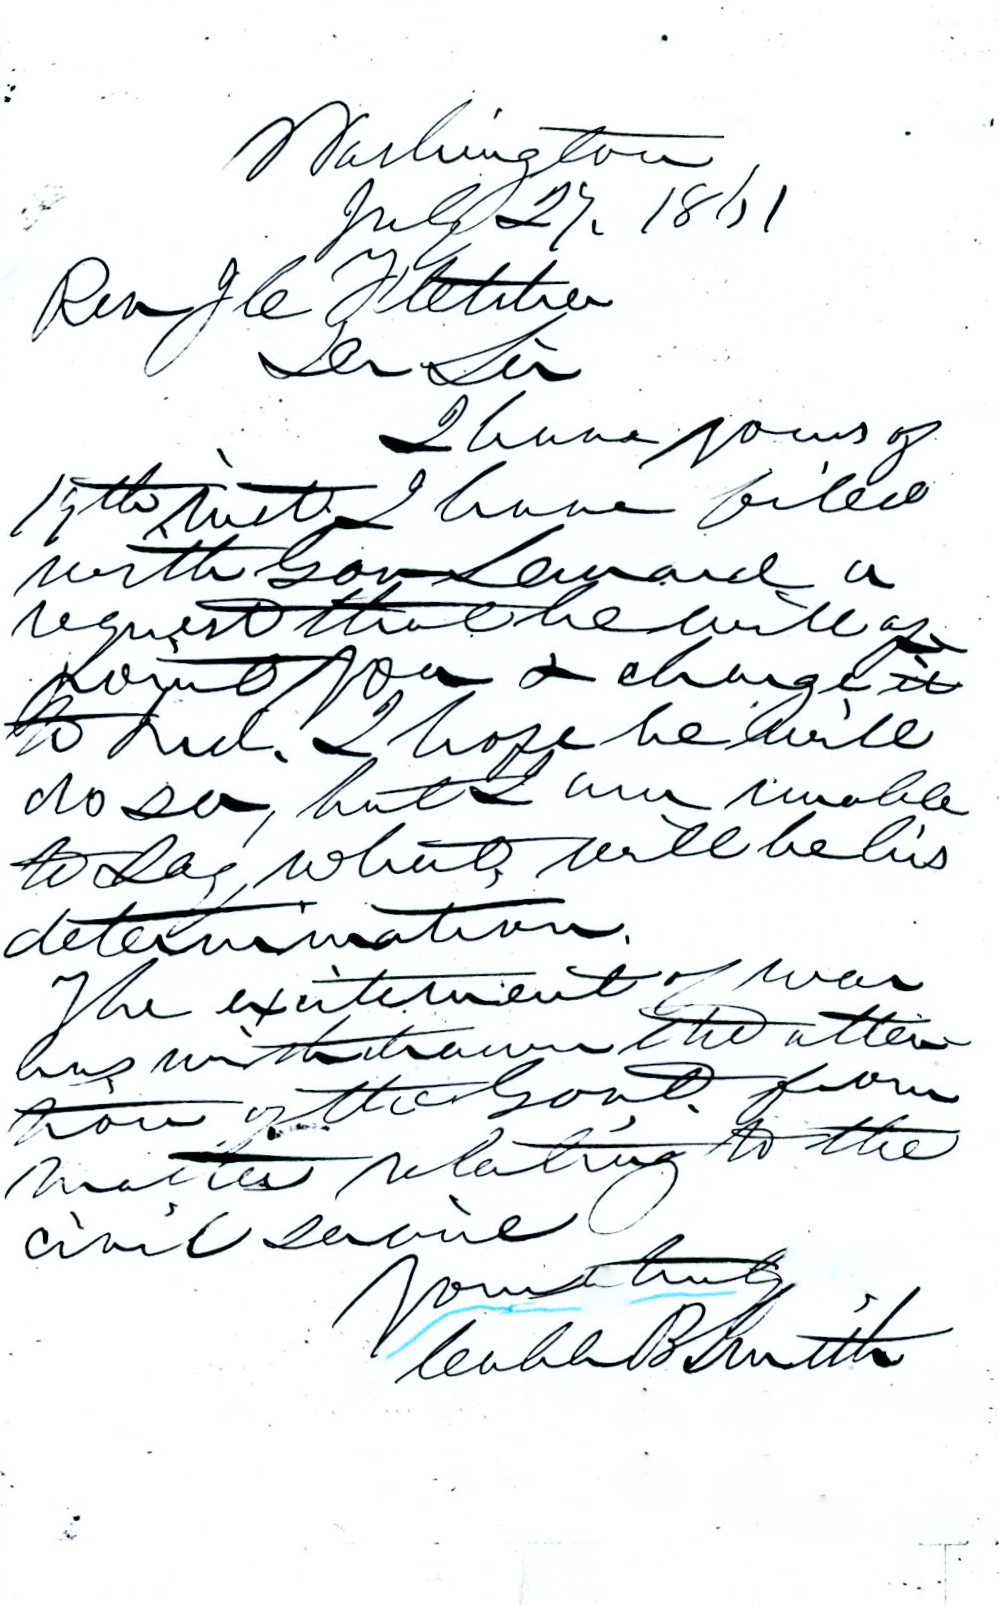 Washington
July 27, 1861
Rev J C Fletcher
Der Sir
I have yours of
17th inst. I have filed
with Gov Seward a
request that he will ap
point you & charge it
to Ind. I hope he will
do so, but I am unable
to say what will be his
determination.
The excitement of war
has withdrawn the atten
tion of the Govt. from
matters relating to the
civil service
Yours truly
Caleb B Smith